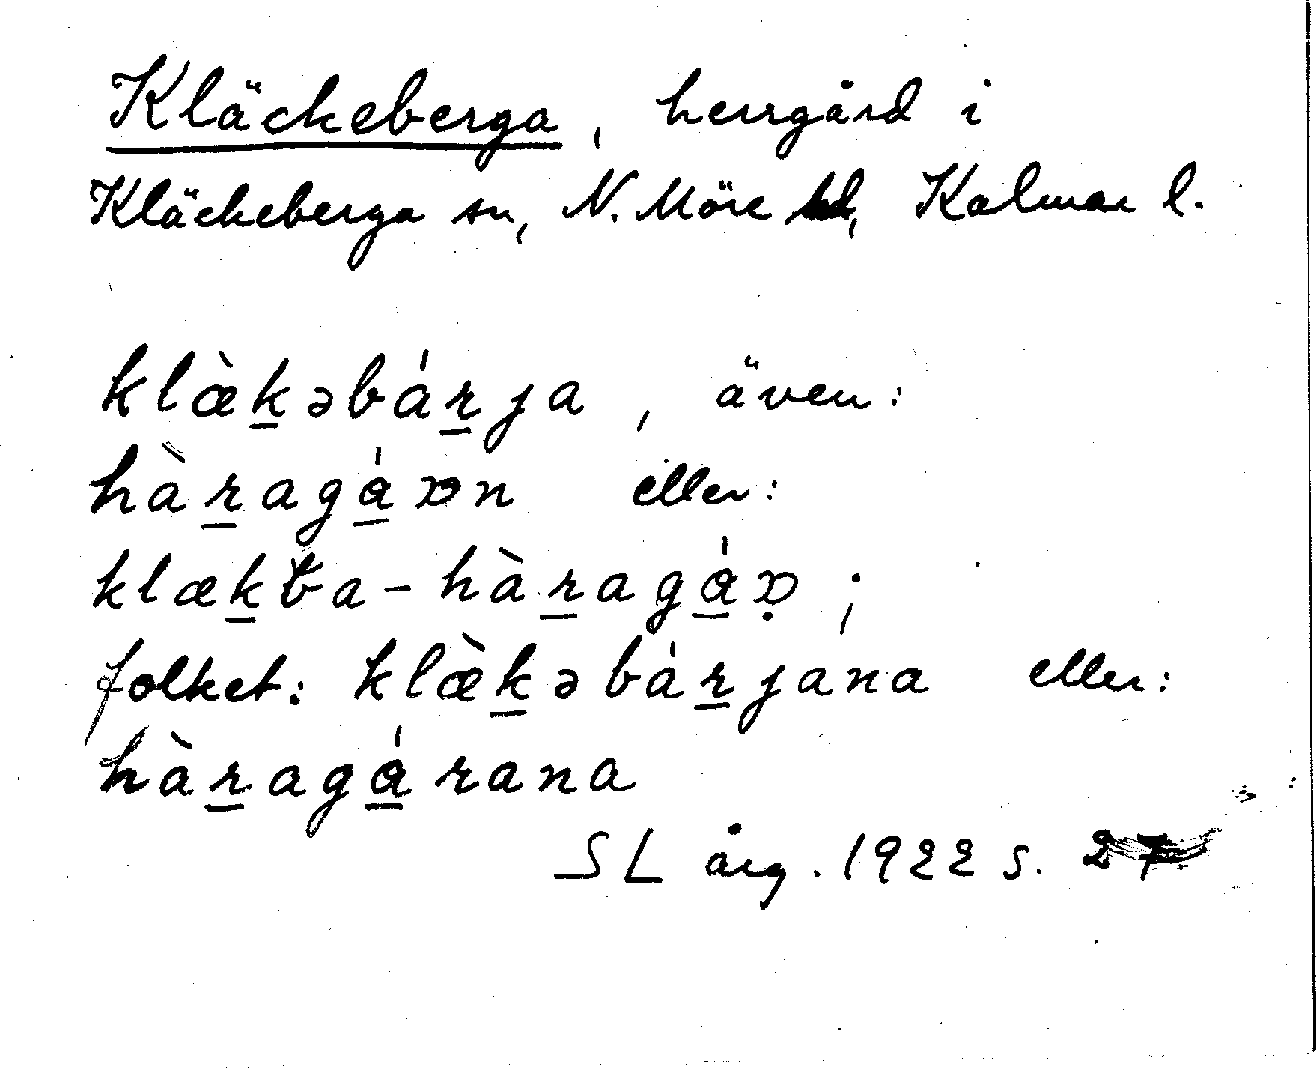 Kläckeberga, herrgård i
Kläckeberga sn, N. Möre hd, Kalmar l.
klæ̀k̠əbár̠ja, även:
hàr̠agá̠ꭗn eller:
klæk̠ba-hàr̠agá̠ꭗ̣;
folket: klæ̀k̠əbár̠jana eller:
hàr̠agá̠rana
SL årg. 1922 s. 27